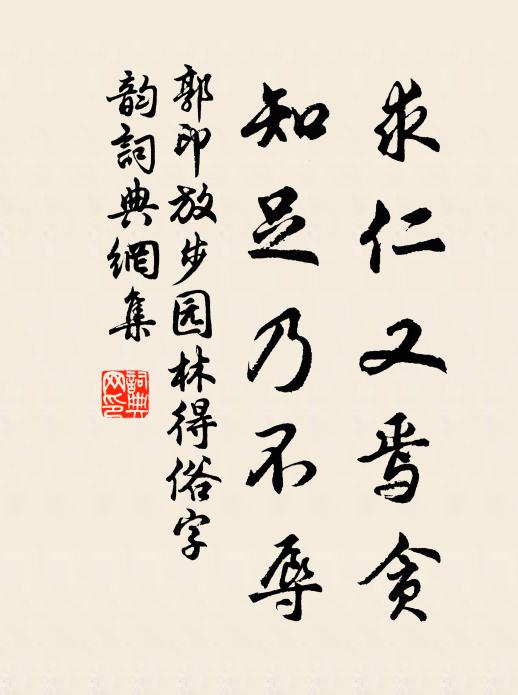 求仁又焉贪
知足乃不辱
郭印放步园林得俗字
韵詞典網集
詞典
网印